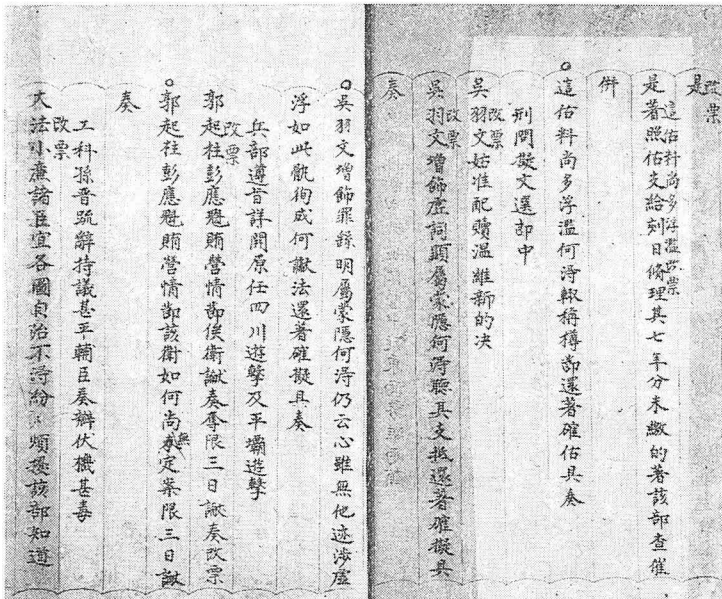 改票
是
這估料尚多浮濫改票
是著照佑支給刻日脩理其七年分未繳的著該部查催
併
○這估料尚多浮濫何淂輙稱撙節還著確估具奏
刑問擬文選郎中
改票
吳羽文姑准配贖溫維新的决
改票
吳羽文增飾虛詞顯屬蒙隱何淂聽其支抵還著確擬具
奏
○吳羽文增飾罪繇明屬蒙隱何淂仍云心雖無他迹涉虛
浮如此骫徇成何讞法還著確擬具奏
兵部遵旨詳開原任四川遊擊及平壩遊擊
改票
郭起柱彭應魁賄營情節俟衛讞奏奪限三日讞奏改票
○郭起柱彭應魁賄營情節該衛如何尚無定案限三日讞
奏
工科孫晉疏辭持議甚平輔臣奏辯伏機甚毒
改票
大法小廉諸臣宜各圖自治不淂紛紛煩擾該部知道